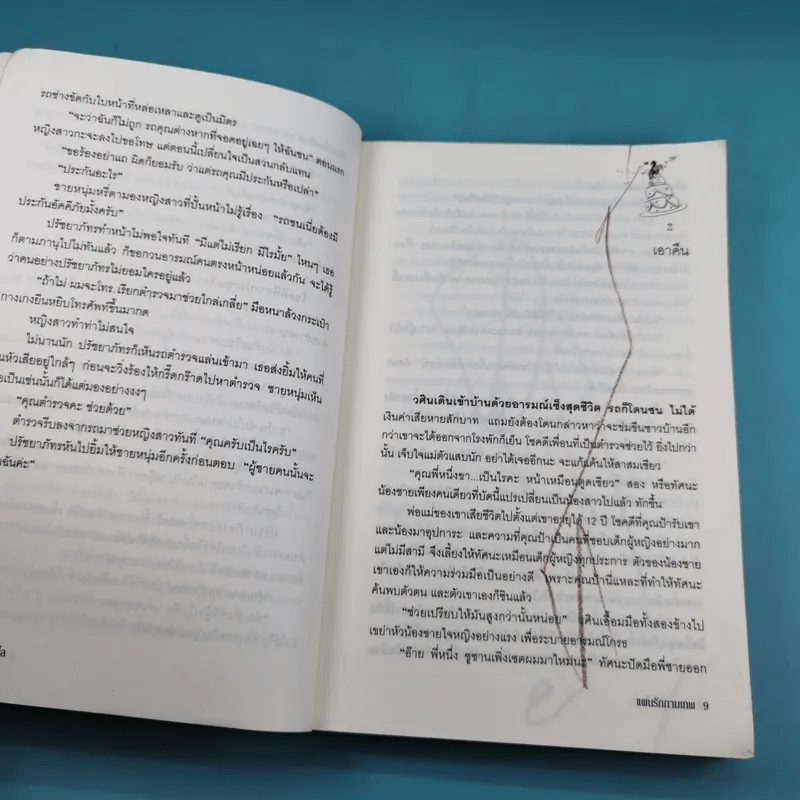 รถช่างขัดกับใบหน้าที่หล่อเหลาและดูเป็นมิตร
“จะว่าฉันก็ไม่ถูก รถคุณต่างหากที่จอดอยู่เฉยๆ ให้ฉันชน” ตอนแรก
หญิงสาวกะจะลงไปขอโทษ แต่ตอนนี้เปลี่ยนใจเป็นสวนกลับแทน
“ขอร้องอย่าแถ ผิดก็ยอมรับ ว่าแต่รถคุณมีประกันหรือเปล่า”
“ประกันอะไร”
ชายหนุ่มหรี่ตามองหญิงสาวที่ปั้นหน้าไม่รู้เรื่อง “รถชนเนี่ยต้องมี
ประกันอัคคีภัยมั้งครับ”
ปรัชยาภัทรทำหน้าไม่พอใจทันที “มีแต่ไม่เรียก มีไรมั้ย” ไหนๆ เธอ
ก็ตามภานุไปไม่ทันแล้ว ก็ขอกวนอารมณ์คนตรงหน้าหน่อยแล้วกัน จะได้รู้
ว่าคนอย่างปรัชยาภัทรไม่ยอมใครอยู่แล้ว
“ถ้าไม่ ผมจะโทร. เรียกตำรวจมาช่วยไกล่เกลี่ย” มือหนาล้วงกระเป๋า
กางเกงยีนหยิบโทรศัพท์ขึ้นมากด
หญิงสาวทำท่าไม่สนใจ
ไม่นานนัก ปรัชยาภัทรก็เห็นรถตำรวจแล่นเข้ามา เธอส่งยิ้มให้คนที่
นหัวเสียอยู่ใกล้ๆ ก่อนจะวิ่งร้องให้กรี๊ดกร๊าดไปหาตำรวจ ชายหนุ่มเห็น
อเป็นเช่นนั้นก็ได้แต่มองอย่างงงๆ
“คุณตำรวจคะ ช่วยด้วย”
ตำรวจรีบลงจากรถมาช่วยหญิงสาวทันที “คุณครับเป็นไรครับ”
ปรัชยาภัทรหันไปยิ้มให้ชายหนุ่มอีกครั้งก่อนตอบ “ผู้ชายคนนั้นจะ
นฉันค่ะ”
2
เอาคืน
วศินเดินเข้าบ้านด้วยอารมณ์เซ็งสุดชีวิต รถก็โดนชน ไม่ได้
เงินค่าเสียหายสักบาท แถมยังต้องโดนกล่าวหาว่าจะข่มขืนชาวบ้านอีก
กว่าเขาจะได้ออกจากโรงพักก็เย็น โชคดีที่เพื่อนที่เป็นตำรวจช่วยไว้ ยิ่งไปกว่า
นั้น เจ็บใจแม่ตัวแสบนัก อย่าได้เจออีกนะ จะแก้แค้นให้สาสมเชียว
“คุณพี่หนึ่งขา...เป็นไรคะ หน้าเหมือนตูดเชียว” สอง หรือทัศนะ
น้องชายเพียงคนเดียวที่บัดนี้แปรเปลี่ยนเป็นน้องสาวไปแล้ว ทักขึ้น
พ่อแม่ของเขาเสียชีวิตไปตั้งแต่เขาอายุได้ 12 ปี โชคดีที่คุณป้ารับเขา
และน้องมาอุปการะ และความที่คุณป้าเป็นคนที่ชอบเด็กผู้หญิงอย่างมาก
แต่ไม่มีสามี จึงเลี้ยงให้ทัศนะเหมือนเด็กผู้หญิงทุกประการ ตัวของน้องชาย
เขาเองก็ให้ความร่วมมือเป็นอย่างดี เพราะคุณป้านี่แหละที่ทำให้ทัศนะ
ค้นพบตัวตน และตัวเขาเองก็ชินแล้ว
“ช่วยเปรียบให้มันสูงกว่านั้นหน่อย” วศินเอื้อมมือทั้งสองข้างไป
เขย่าหัวน้องชายใจหญิงอย่างแรง เพื่อระบายอารมณ์โกรธ
“อ๊าย พี่หนึ่ง ซูซานเพิ่งเซตผมมาใหม่นะ” ทัศนะปัดมือพี่ชายออก
แผนรักกามเทพ 9